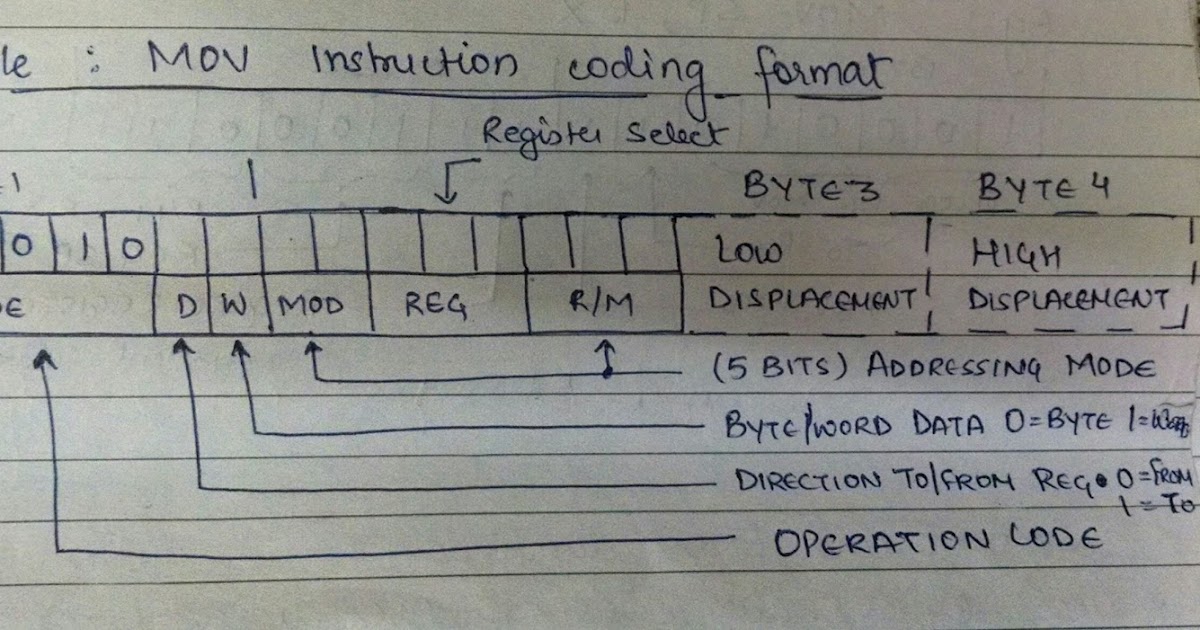 le : MOV Instruction coding format
Register Select
1 BYTE 3 BYTE 4
0 1 0 LOW HIGH
E D W MOD REG R/M DISPLACEMENT DISPLACEMENT
(5 BITS) ADDRESSING MODE
BYTE/WORD DATA 0=BYTE 1=
DIRECTION TO/FROM REG. 0=FROM
1=TO
OPERATION CODE